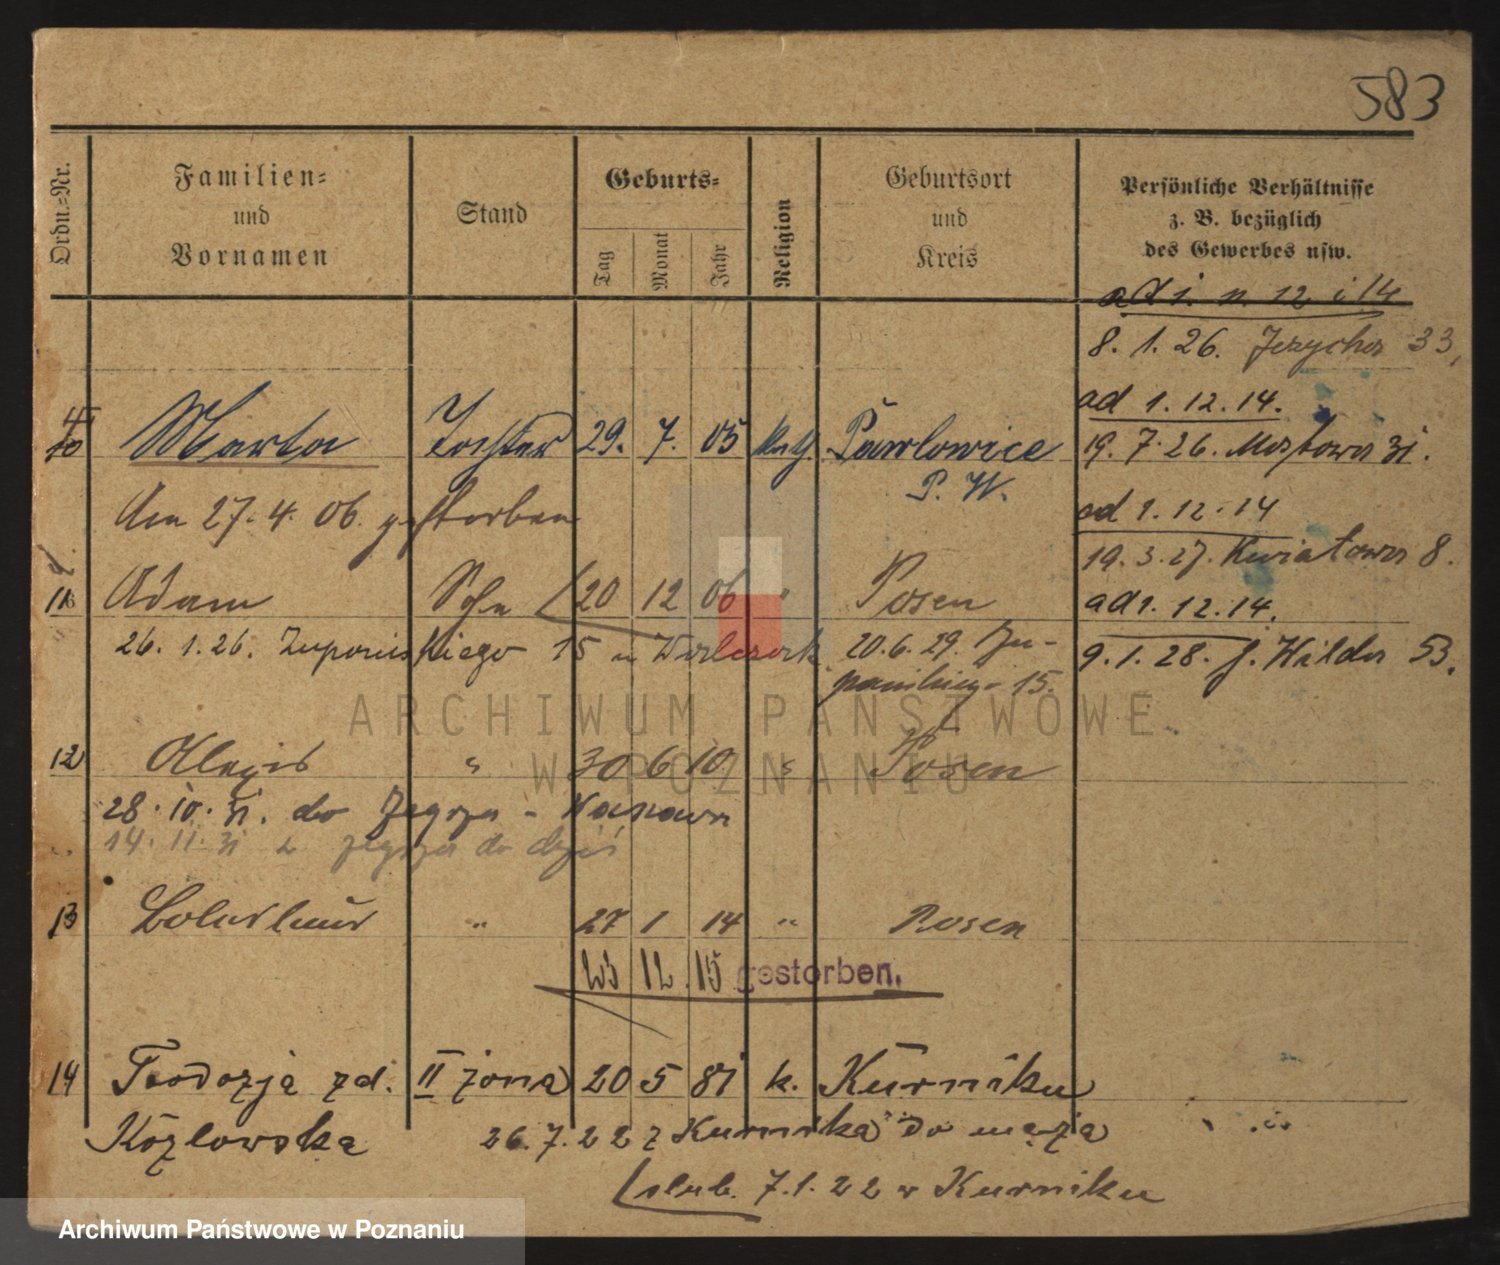 583
Ordn.-Nr.
Familien-
und
Vornamen
Stand
Geburts-
Tag
Monat
Jahr
Religion
Geburtsort
und
Kreis
Persönliche Verhältnisse
z. B. bezüglich
des Gewerbes usw.
ad 1. 12 i 14
8. 1. 26. 33,
ad 1. 12. 14.
Marta Tochter 29. 7. 05 kath. Pawlowice
P. W.
19. 7. 26. Mostowa 31.
Am 27. 4. 06. gestorben
ad 1. 12. 14
19. 3. 27. Kwiatowa 8.
11 Adam Sohn 20 12 06 " Posen
ad 1. 12. 14.
26. 1. 26. Żupańskiego 15 u Walczak 20. 6. 29. Żu-
pańskiego 15.
9. 1. 28. G. Wilda 53.
12 Alexis " 30 6 10 " Posen
28. 10. 31. do Zegrza -
14. 11. 31 z Zegrza do
13 Boleslaus " 27 1 14 " Posen
23 12 15 gestorben.
14 Teodozja zd. II żona 20 5 81 k. Kurniku
Kozlowska 26. 7. 22 z Kurnika do męża
slub. 7. 1. 22 w Kurniku
ARCHIWUM PAŃSTWOWE
W POZNANIU
Archiwum Państwowe w Poznaniu